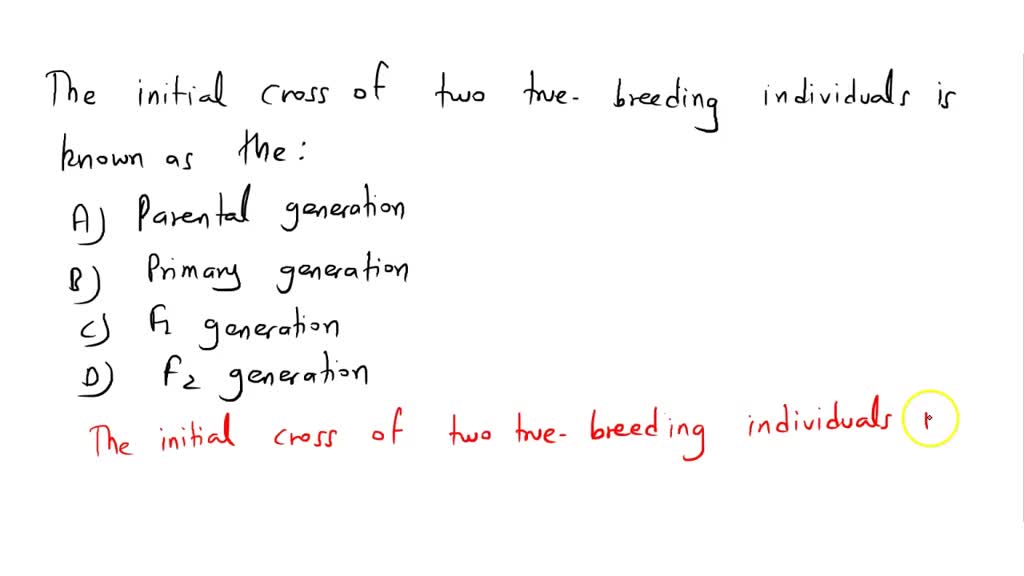 The initial cross of two true-breeding individuals is
known as the:
A) Parental generation
B) Primary generation
C) F1 generation
D) F2 generation
The initial cross of two true-breeding individuals